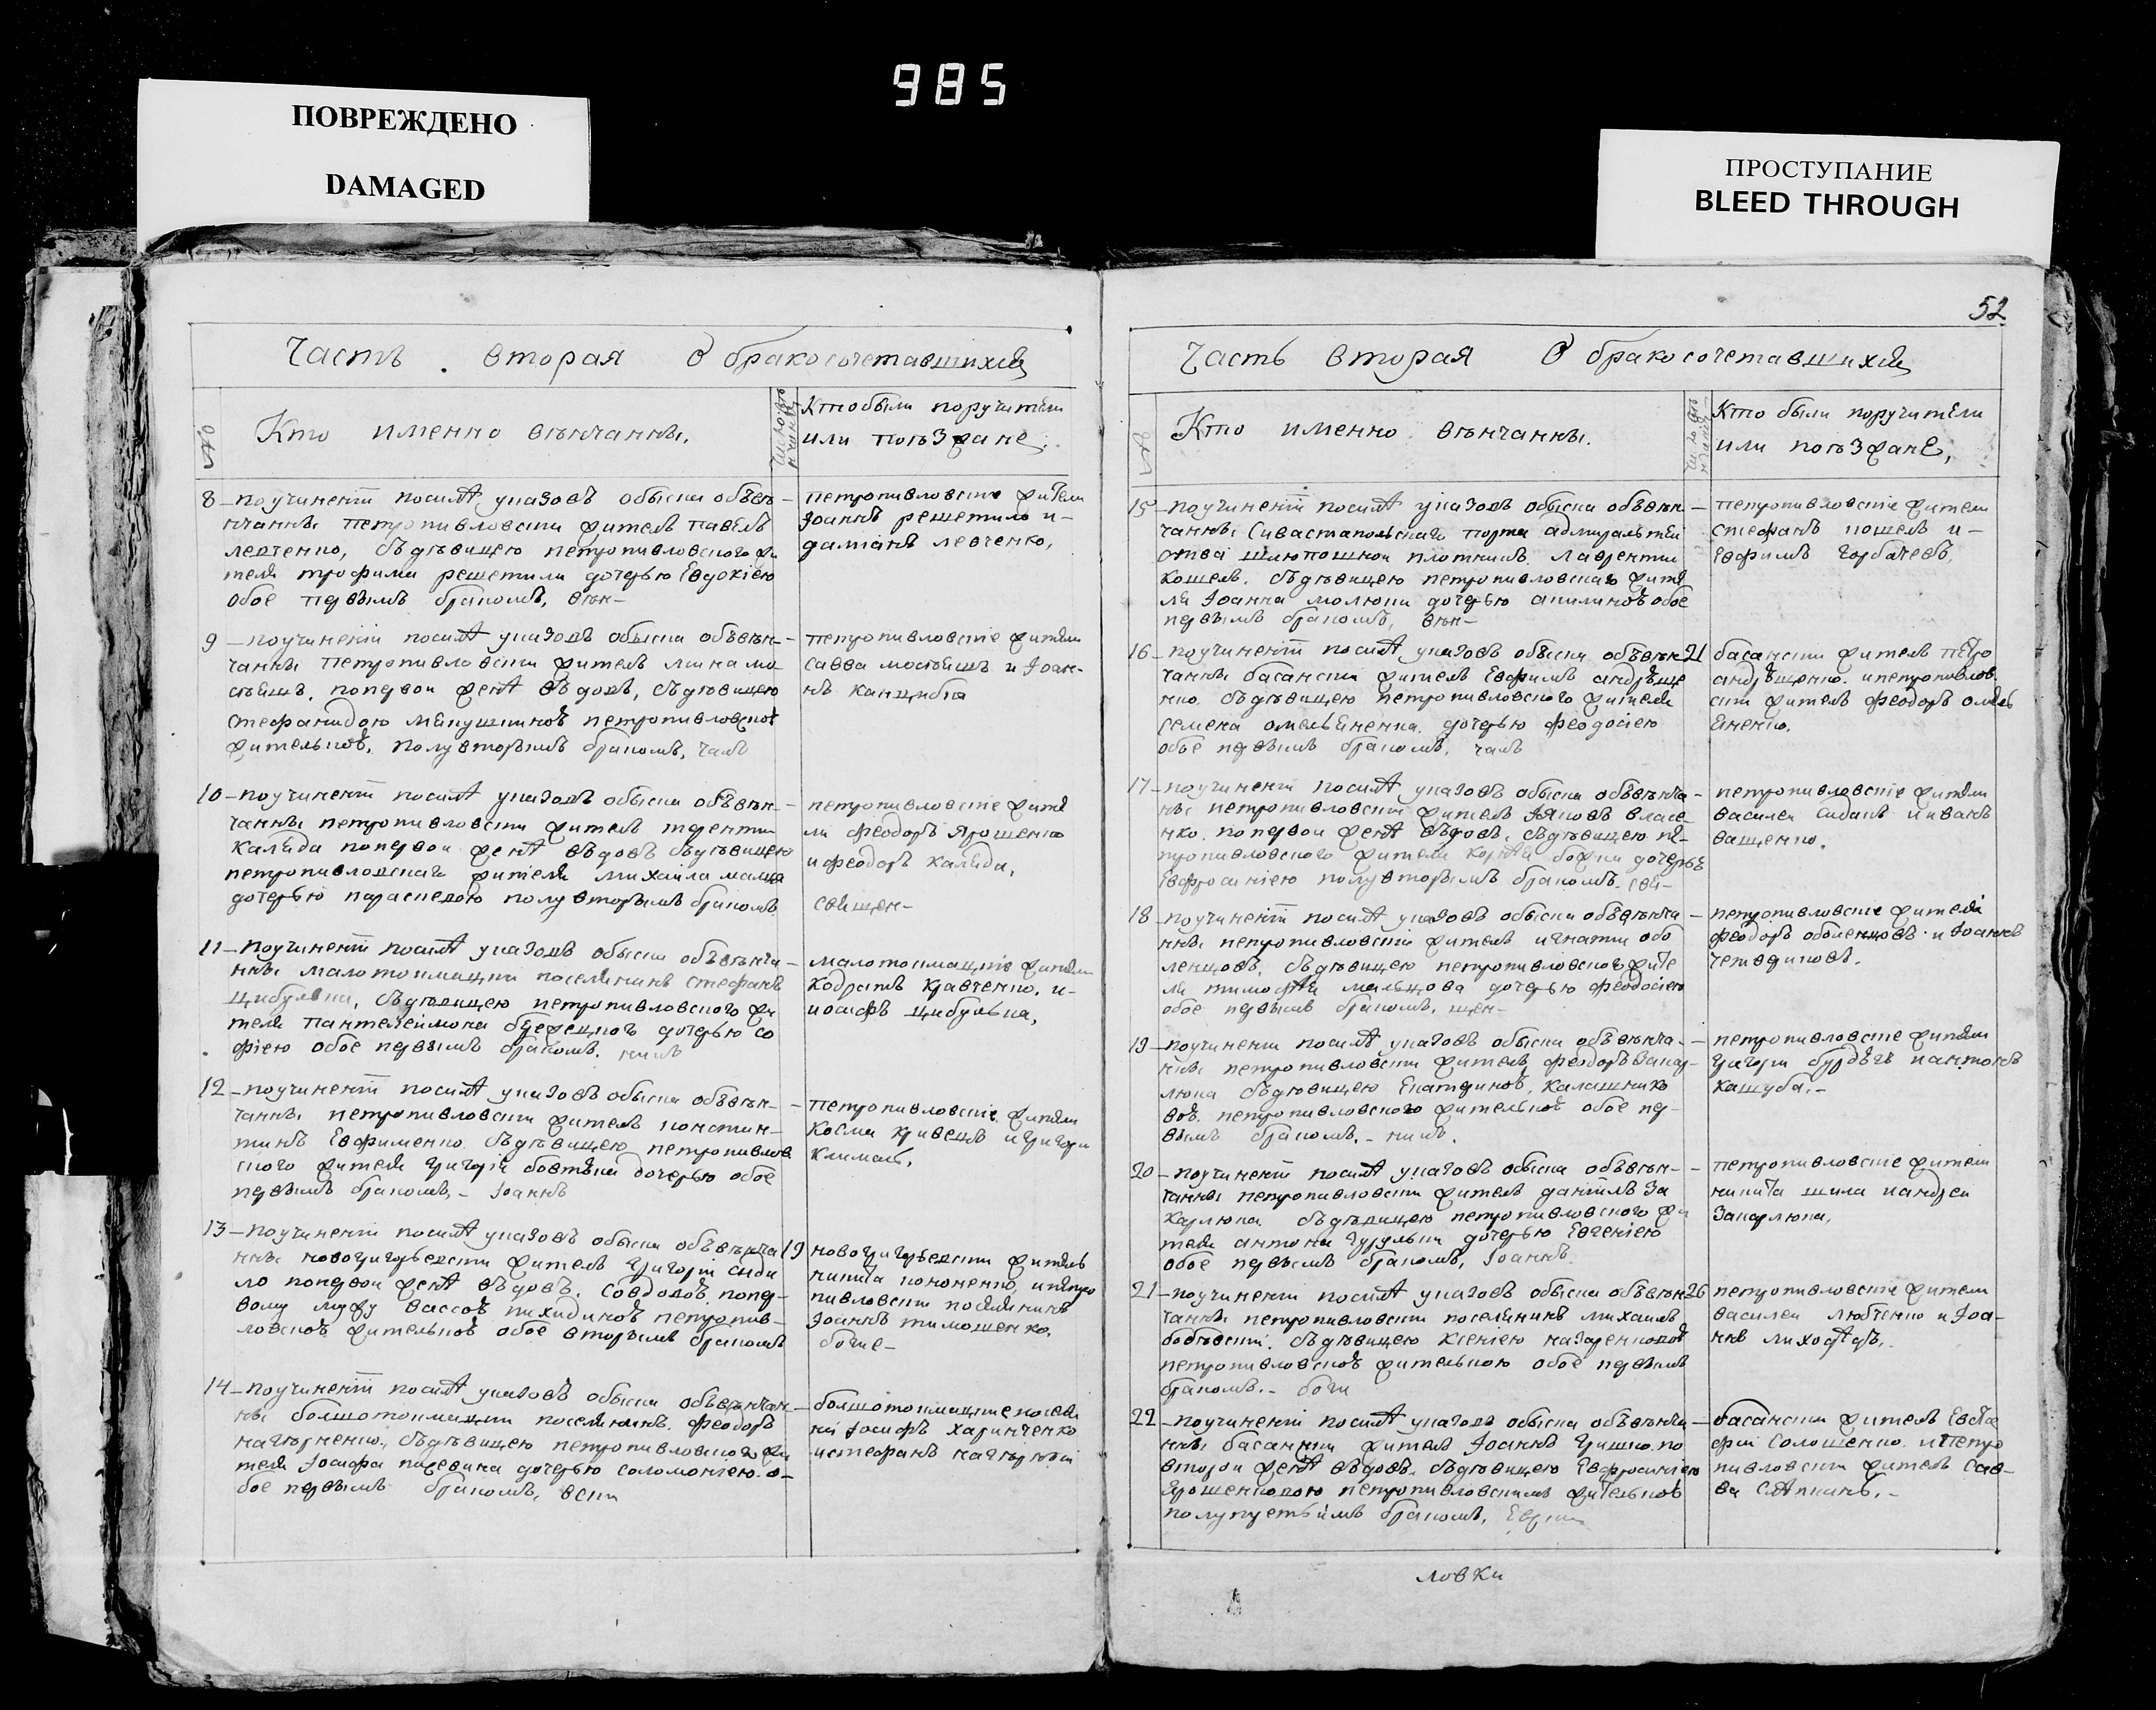 985
ПОВРЕЖДЕНО
DAMAGED
ПРОСТУПАНИЕ
BLEED THROUGH
Часть вторая О бракосочетавшихся
№
Кто именно вѣнчанны.
Кто были поручители
или поѣзжане.
8 – по учинении по силѣ указовъ обыска обвѣн –
чанны петропавловски житель павелъ
левченко, съдѣвицею петропавловского жи
теля трофима решетила дочерью Евдокіею
обое первымъ бракомъ, вѣн –
петропавловские жители
Іоаннъ решетило и –
даміанъ левченко,
9 – по учинении по силѣ указовъ обыска обвѣн –
чанны петропавловски житель мина мо
сѣешъ, по первой женѣ вдовъ, съдѣвицею
стефанидою петропавловской
жительной, полувторымъ бракомъ,
петропавловские жители
савва мосѣешъ и Іоан –
нъ канцыба
10 – по учинении по силѣ указовъ обыска обвѣн –
чанны петропавловски житель терентии
каляда по первой женѣ вдовъ съдѣвицею
петропавловскаго жителя михаила
дочерью параскевою полувторымъ бракомъ
петропавловские жите
ли феодоръ ярошенко
и феодоръ каляда,
священ –
11 – по учинении по силѣ указовъ обыска обвѣнча –
нны малотокмацки поселянинъ стефанъ
цибулька, съдѣвицею петропавловского жи
теля пантелеимона дочерью со
фіею обое первымъ бракомъ.
малотокмацкие жители
кодратъ кравченко, и –
иосифъ цибулька,
12 – по учинении по силѣ указовъ обыска обвѣн –
чанны петропавловски житель констан –
тинъ Евфименко съдѣвицею петропавлов
ского жителя григорія дочерью обое
первымъ бракомъ, – Іоаннъ
петропавловские жители
косма кривецъ и григори
климашъ,
13 – по учинении по силѣ указовъ обыска обвѣнча 19
нны новогригорьевски житель григори сыды
ло по первой женѣ вдовъ, совдовой по пер –
вому мужу вассой петропав –
ловской жительной обое вторымъ бракомъ
новогригорьевски житель
никита кононенко, и петро
павловски поселянинъ
Іоаннъ тимошенко,
14 – по учинении по силѣ указовъ обыска обвѣнчан –
ны болшотокмацки поселянинъ феодоръ
нагорненко, съдѣвицею петропавловского жи
теля Іосифа дочерью соломоніею о –
бое первымъ бракомъ,
болшотокмацкие поселя
не Іосифъ харинченко
и стефанъ нагорный
52
Часть вторая О бракосочетавшихся
№
Кто именно вѣнчанны.
Кто были поручители
или поѣзжане,
15 – по учинении по силѣ указовъ обыска обвѣн –
чанны Сивастопольскаго порта адмиралтей
ства плотникъ лаврентии
кошель, съдѣвицею петропавловскаго жите
ля Іоанна молюки дочерью акилиной обое
первымъ бракомъ, вѣн –
петропавловские жители
стефанъ кошель и –
Евфимъ горбачевъ,
16 – по учинении по силѣ указовъ обыска обвѣн 21
чанны басански житель Евфимъ андрѣще
нко, съдѣвицею петропавловского жителя
семена омельяненка дочерью феодосіею
обое первымъ бракомъ,
басански житель петро
андрѣщенко, и петропавлов
ски житель феодоръ омель
яненко,
17 – по учинении по силѣ указовъ обыска обвѣнча –
нны петропавловски житель яковъ власе
нко, по первой женѣ вдовъ, съдѣвицею пе –
тропавловского жителя дочерью
Евфросиніею полувторымъ бракомъ.
петропавловские жители
василеи сиданъ и иванъ
ващенко.
18 – по учинении по силѣ указовъ обыска обвѣнча –
нны петропавловски житель игнатии обо
ленцовъ, съдѣвицею петропавловского жите
ля тимофея мальцова дочерью феодосіею
обое первымъ бракомъ, щен –
петропавловские жители
феодоръ оболенцовъ и Іоаннъ
четвериковъ.
19 – по учинении по силѣ указовъ обыска обвѣнча –
нны петропавловски житель феодоръ закар –
люка съдѣвицею Екатериной, калашнико
вой, петропавловского жительной обое пер –
вымъ бракомъ. –
петропавловские жители
григори и антонъ
кашуба. –
20 – по учинении по силѣ указовъ обыска обвѣн –
чанны петропавловски житель даніилъ за
карлюка съдѣвицею петропавловского жи
теля антона дочерью Евгеніею
обое первымъ бракомъ, Іоаннъ.
петропавловские жители
никита шила и андреи
закарлюка,
21 – по учинении по силѣ указовъ обыска обвѣн 26
чанны петропавловски поселянинъ михаилъ
съдѣвицею ксеніею назаренковой
петропавловской жительною обое первымъ
бракомъ. –
петропавловские жители
василеи любченко и Іоа –
ннъ
22 – по учинении по силѣ указовъ обыска обвѣнча –
нны басански житель Іоаннъ гришко, по
второй женѣ вдовъ, съдѣвицею Евфросиніею
ярошенковою петропавловскимъ жительной
бракомъ,
басански житель Евста
фіи солошенко, и петро
павловски житель сав –
ва
ловки